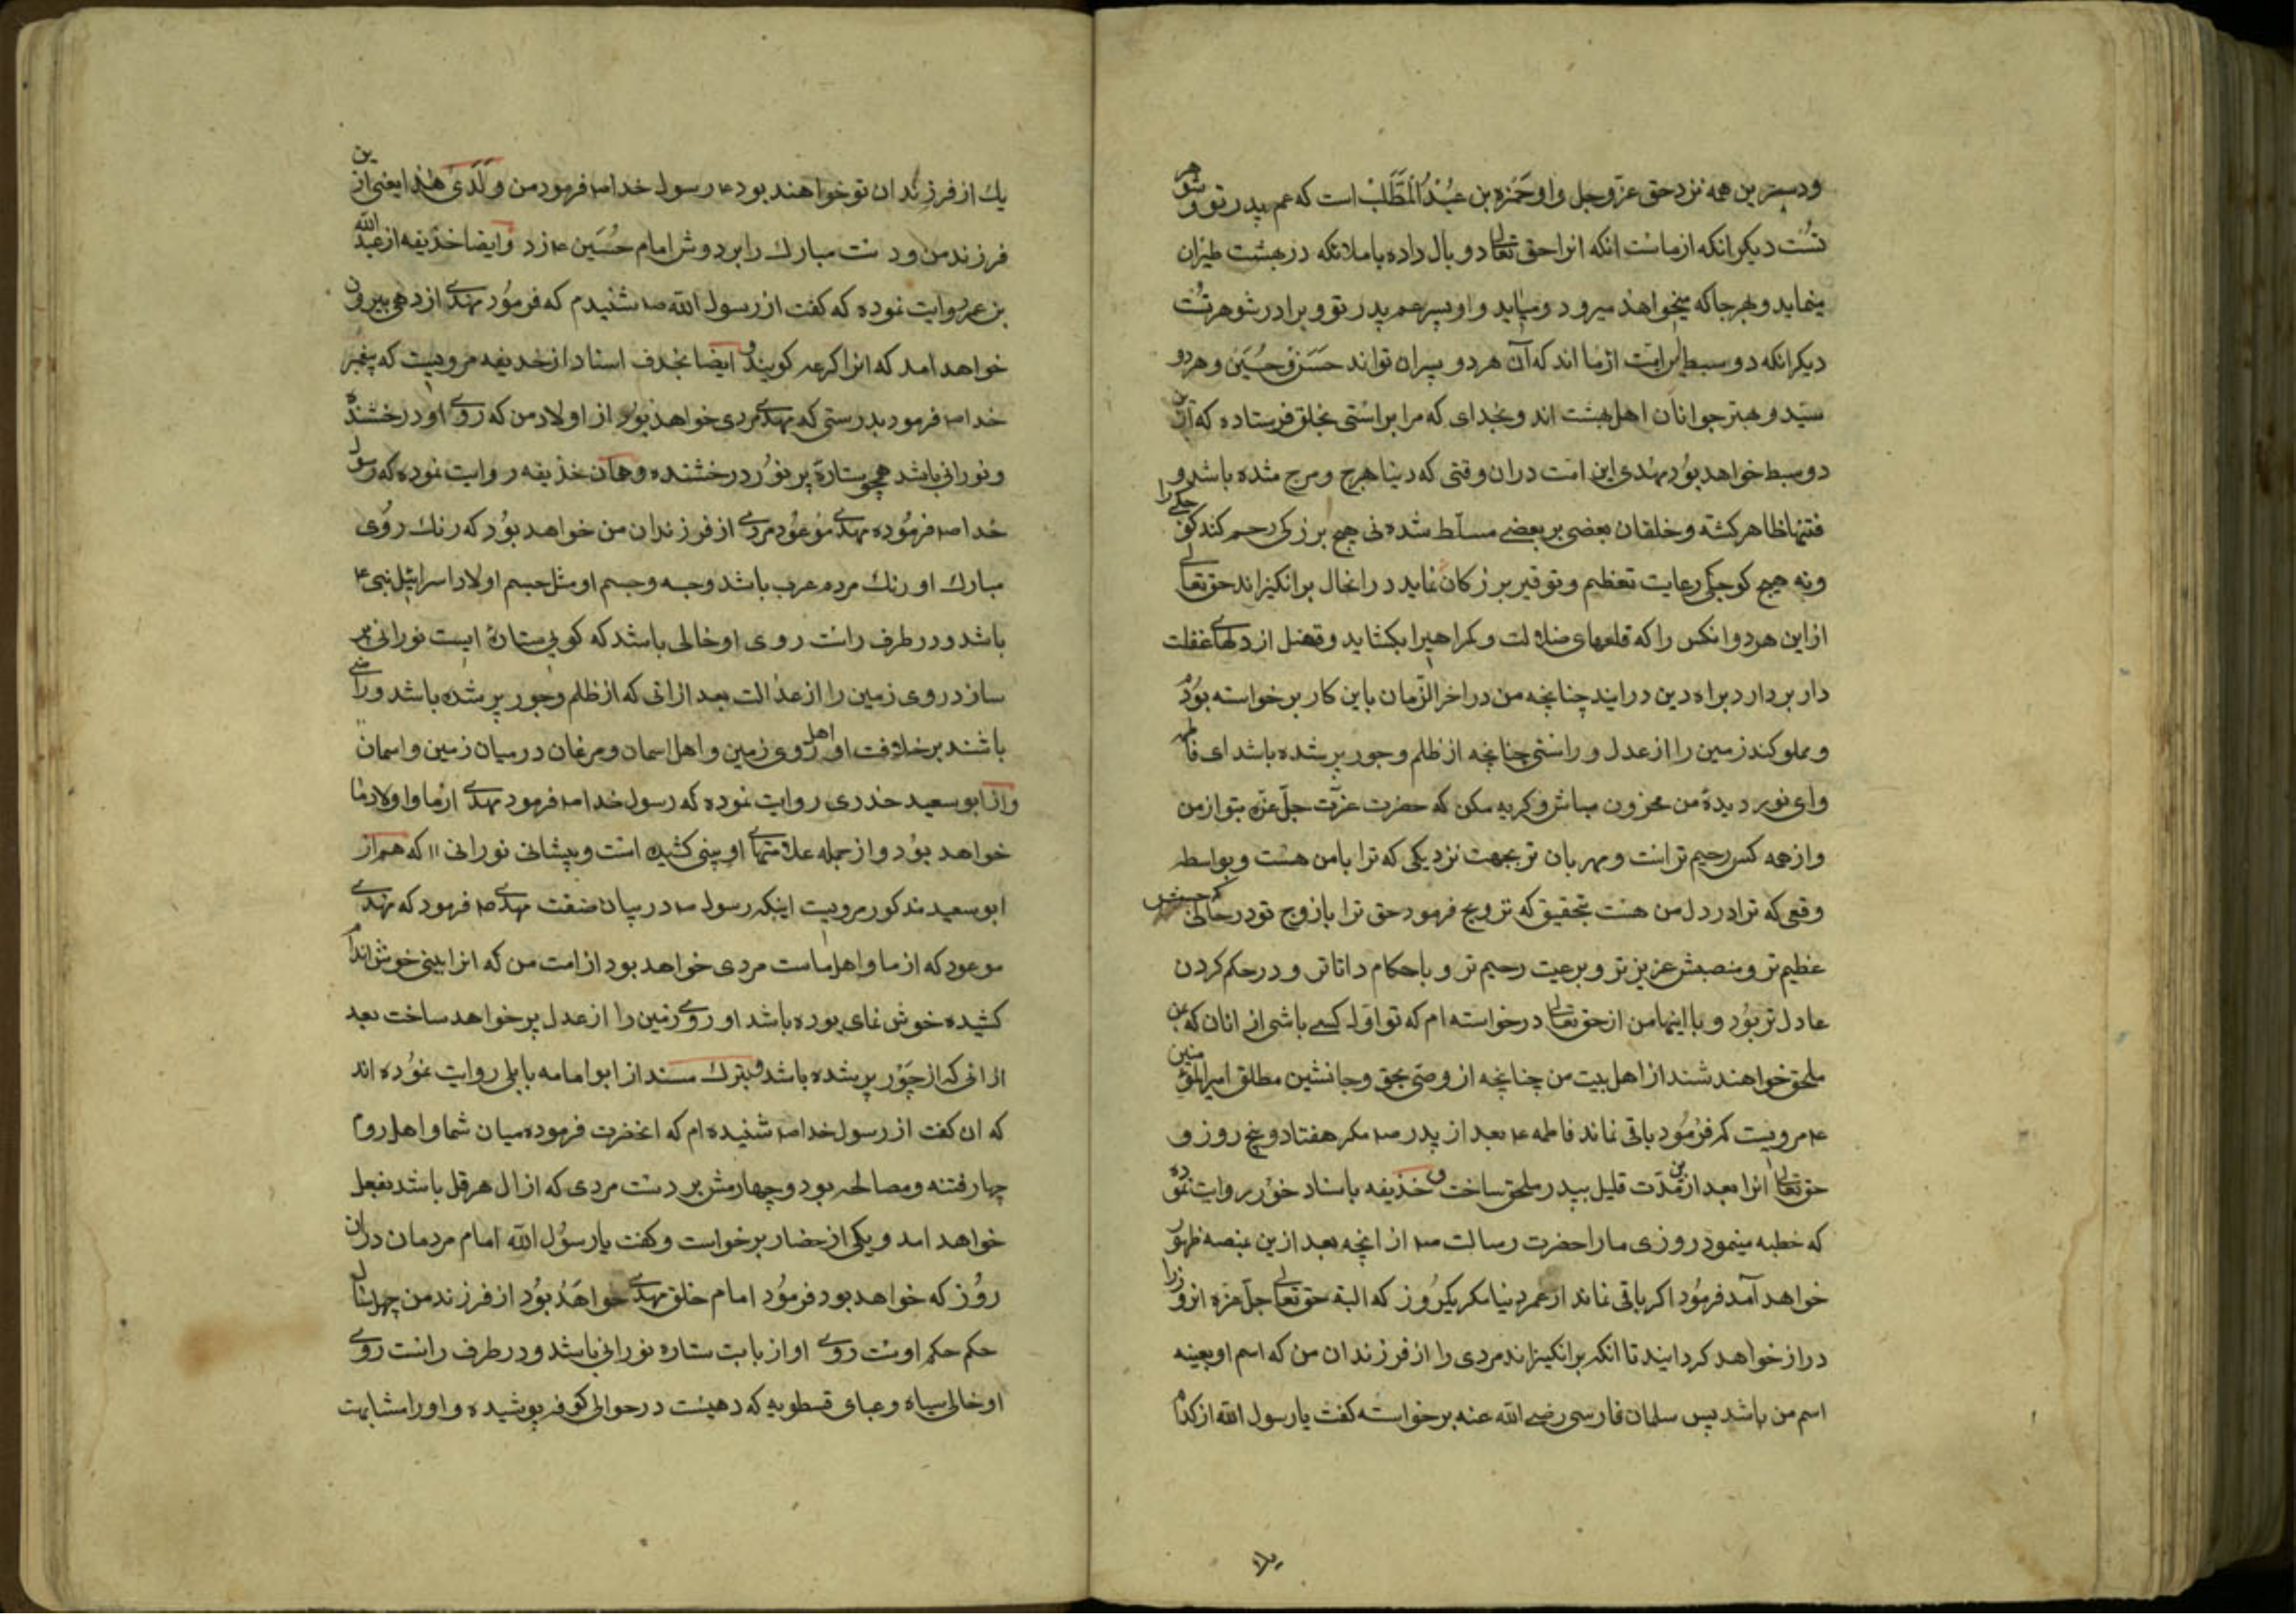 ودستترین همه نزد حق عزّوجل واو حَمْزه بن عَبْدُالْمُطَّلَبْ است که عم پدر تو و شوهر
تُست دیکر انکه از ماست انکه انرا حق تعالی دو بال داده با ملائکه در بهشت طیران
مینماید و بهر جا که میخواهد میرود و میاید و او پسر عم پدر تو و برادر شوهر تُست
دیکر انکه دو سبط این امّت از ما اند که آن هر دو پسران تواند حَسَن و حُسَین و هر دو
سیّد و بهتر جوانان اهل بهشت اند و بخدای که مرا براستی بخلق فرستاده که ازین
دو سبط خواهد بوُد مهدی این امّت دران وقتی که دنیا هرج و مرج شده باشد و
فتنها ظاهر کشته و خلقان بعضی بر بعضے مسلّط شده نی هیچ بزرکی رحم کند کوچکے را
ونه هیچ کوچکی رعایت تعظیم و توقیر بزرکان نماید در انحال برانکیزاند حق تعالی
از این هر دو انکس را که قلعهای ضلالت و کمراهیرا بکشاید وقفل از دلهاے غفلت
دار بردارد براه دین درایند چنانچه من در اخرالزّمان باین کار برخواسته بوُدم
و مملو کند زمین را از عدل و راستی چنانچه از ظلم و جور پر شده باشد ای فاطمه
وای نور دیدهٔ من محزون مباش و کریه مکن که حضرت عزّت جلّ عزّه بتو از من
و از همه کس رحیم تر است و مهربان تر بجهت نزدیکی که ترا با من هست و بواسطه
وقعی که ترا در دل من هست بتحقیق که تزویج فرمود حق ترا با زوج تو در حالتی که حسبش
عظیم تر و منصبش عزیز تر و برعیت رحیم تر و باحکام داناتر و در حکم کردن
عادل تر بوُد و با اینها من از حق تعالی درخواسته ام که تو اوّل کسے باشی از انان که بمن
ملحق خواهند شد از اهل بیت من چنانچه از وصّی بحق و جانشین مطلق امیرالمؤمنین
ع مرویست که فرمُود باقی نماند فاطمه ع بعد از پدر ص مکر هفتاد و پنج روز و
حق تعالی انرا بعد ازین مُدّت قلیل بپدر ملحق ساخت و خذیفه باسناد خوُد روایت نموده
که خطبه مینمود روزی ما را حضرت رسالت ص از انچه بعد ازین بمنصه ظهور
خواهد آمد فرموُد اکر باقی نماند از عمر دنیا مکر یکروُز که البته حق تعالی جلّ عزه انروز را
دراز خواهد کردایند تا انکه برانکیزاند مردی را از فرزندان من که اسم او بعینه
اسم من باشد پس سلمان فارسی رضے الله عنه برخواسته کفت یا رسول الله از کدام
یك از فرزندان تو خواهند بود ع رسول خدا ص فرمود من وَلَدَیٰ هٰذا یعنی از ین
فرزند من و دست مبارك را بر دوش امام حُسَین ع زد و ایضا خذیفه از عبدالله
بن عمر روایت نموده که کفت از رسول الله ص شنیدم که فرموُد مهدے از دهی بیرون
خواهد امد که انرا کرعه کویند و ایضا بحذف اسناد از خدیفه مرویست که پیغمبر
خدا ص فرمود بدرستی که مهدے مردی خواهد بوُد از اولاد من که روے او درخشنده
و نورانی باشد همچو ستارهٔ پر نوُر درخشنده و همان خذیفه روایت نموده که رسول
خدا ص فرموُده مهدے موُعوُد مردے از فرزندان من خواهد بوُد که رنك روُی
مبارك او رنك مردم عرب باشد و جسم او مثل جسم اولاد اسرائیل نبی ع
باشد و در طرف راست روی او خالی باشد که کویی ستارهٔ ایست نورانی پر
سازد روی زمین را از عدالت بعد ازانی که از ظلم و جور پر شده باشد و راضی
باشند بر خلافت او اهل روی زمین و اهل اسمان و مرغان در میان زمین و اسمان
و از ابو سعید خذری روایت نموده که رسول خدا ص فرمود مهدے از ما و اولاد ما
خواهد بوُد و از جمله علامتهاے او بینی کشیده است و پیشانی نورانی اا که هم از
ابو سعید مذکور مرویست اینکه رسول ص در بیان صفت مهدے ص فرمود که مهدے
موعود که از ما و اهل ماست مردی خواهد بود از امت من که انرا بینی خوش اندام
کشیده خوش نمای بوده باشد او روے زمین را از عدل پر خواهد ساخت بعد
ازانی که از جَوْر پر شده باشد و بترك مسند از ابو امامه باهلی روایت نموُده اند
که ان کفت از رسول خدا ص شنیده ام که انحضرت فرموده میان شما و اهل روم
چهار فتنه و مصالحه بود و چهارمش بر دست مردی که از ال هرقل باشد بفعل
خواهد امد و یکی از حضار برخواست و کفت یا رسوُل الله امام مردمان دران
روُز که خواهد بود فرموُد امام خلق مهدے خواهَدُ بوُد از فرزند من چهل سال
حکم حکم اوست روے او از بابت ستاره نورانی باشد و در طرف راست روے
او خالی سیاه و عبای قسطویه که دهیست در حوالی کوفه پوشیده و او را مشابهت